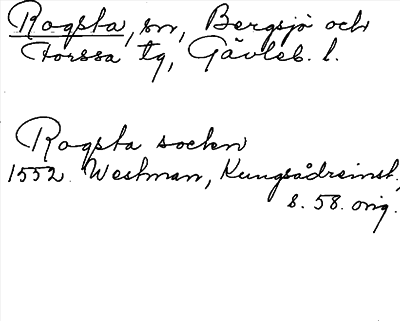 Rogsta, sn, Bergsjö och
Forssa tg, Gävleb. l.
Rogsta socken
1552 Westman, Kungsådreinst.,
s. 58. orig.